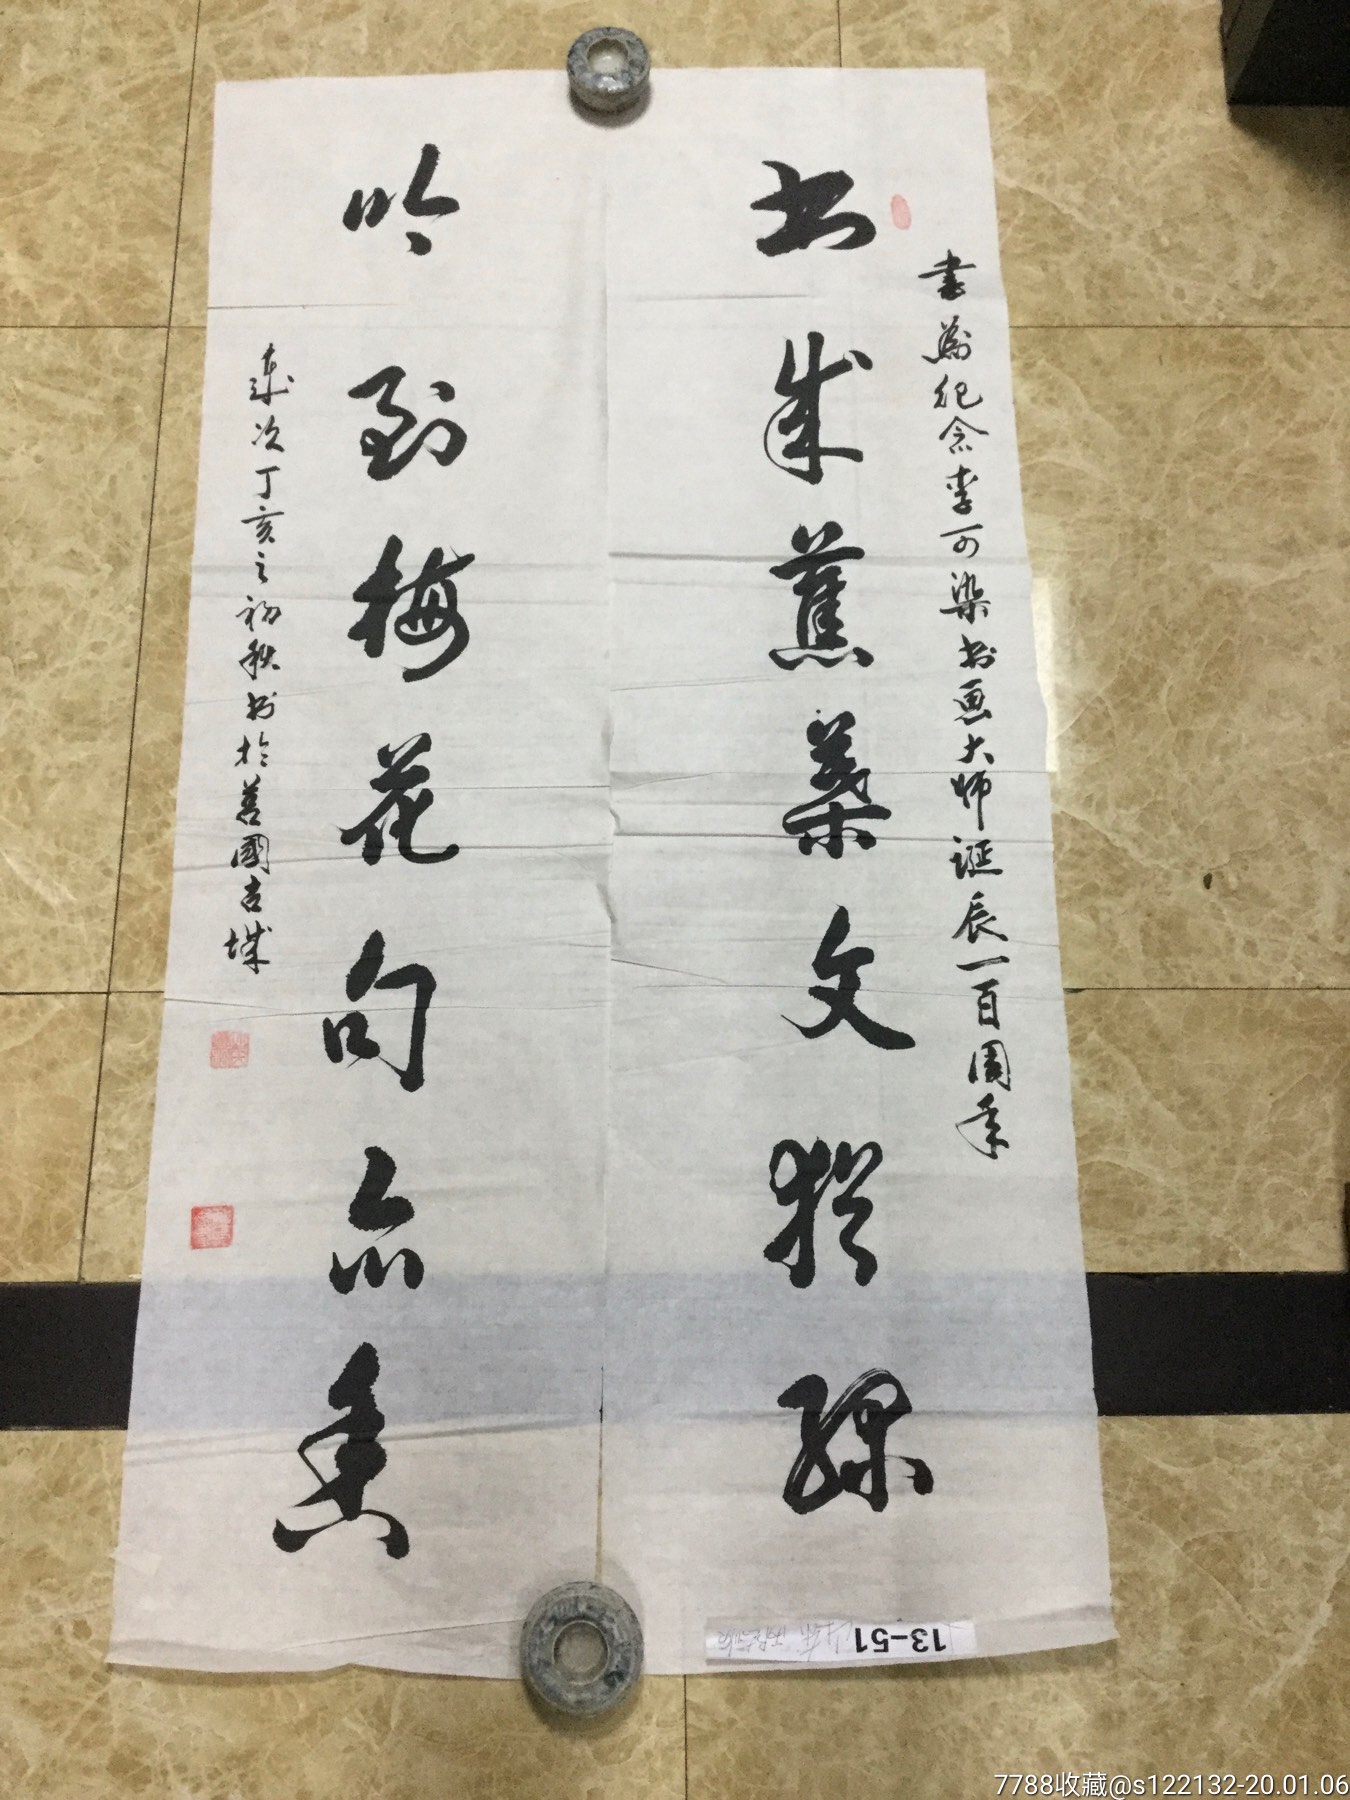 書為紀念李可染书画大师诞辰一百周年
书成蕉葉文犹绿
吟到梅花句亦香
歲次丁亥之初秋书於善國古城
13-51
7788收藏@s122132-20.01.06